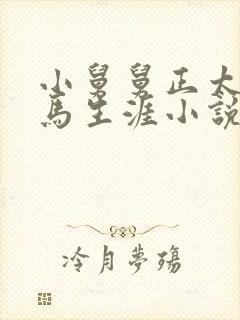 小舅舅正太
馬生涯小說
冷月夢殤